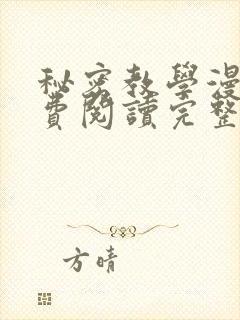 秘密教學漫
費閱讀完整
方晴